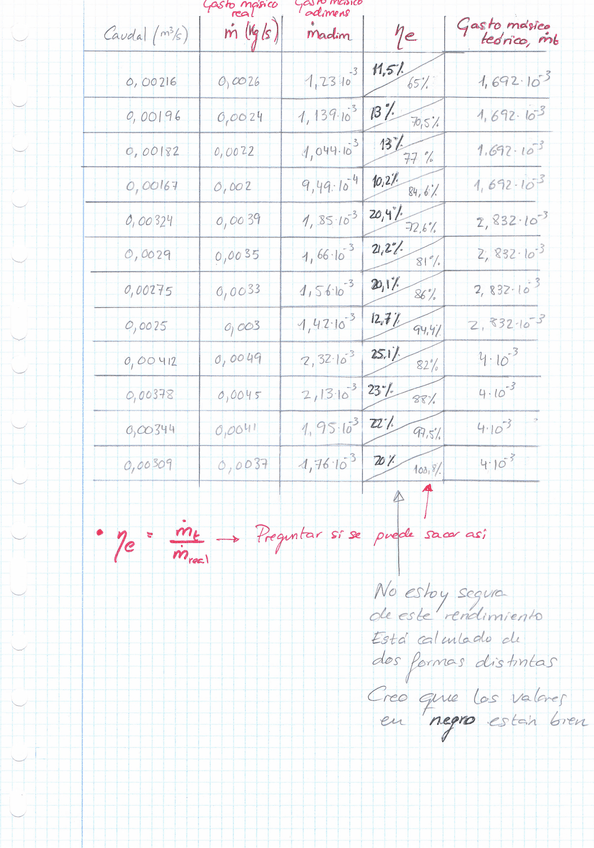 Gasto másico real
Gasto másico adimens
Caudal (m³/s) ṁ (Kg/s) ṁadim ηe Gasto másico teórico, ṁb
0,00216 0,0026 1,23·10⁻³ 11,5% 65% 1,692·10⁻³
0,00196 0,0024 1,139·10⁻³ 13% 70,5% 1,692·10⁻³
0,00182 0,0022 1,044·10⁻³ 13% 77% 1.692·10⁻³
0,00167 0,002 9,49·10⁻⁴ 10,2% 84,6% 1,692·10⁻³
0,00324 0,0039 1,85·10⁻³ 20,4% 72,6% 2,832·10⁻³
0,0029 0,0035 1,66·10⁻³ 21,2% 81% 2,832·10⁻³
0,00275 0,0033 1,56·10⁻³ 20,1% 86% 2,832·10⁻³
0,0025 0,003 1,42·10⁻³ 12,7% 94,4% 2,832·10⁻³
0,00412 0,0049 2,32·10⁻³ 25,1% 82% 4·10⁻³
0,00378 0,0045 2,13·10⁻³ 23% 88% 4·10⁻³
0,00344 0,0041 1,95·10⁻³ 22% 97,5% 4·10⁻³
0,00309 0,0037 1,76·10⁻³ 20% 4·10⁻³
• ηe = ṁt / ṁreal → Preguntar si se puede sacar así
No estoy segura
de este rendimiento
Está calculado de
dos formas distintas
Creo que los valores
en negro están bien